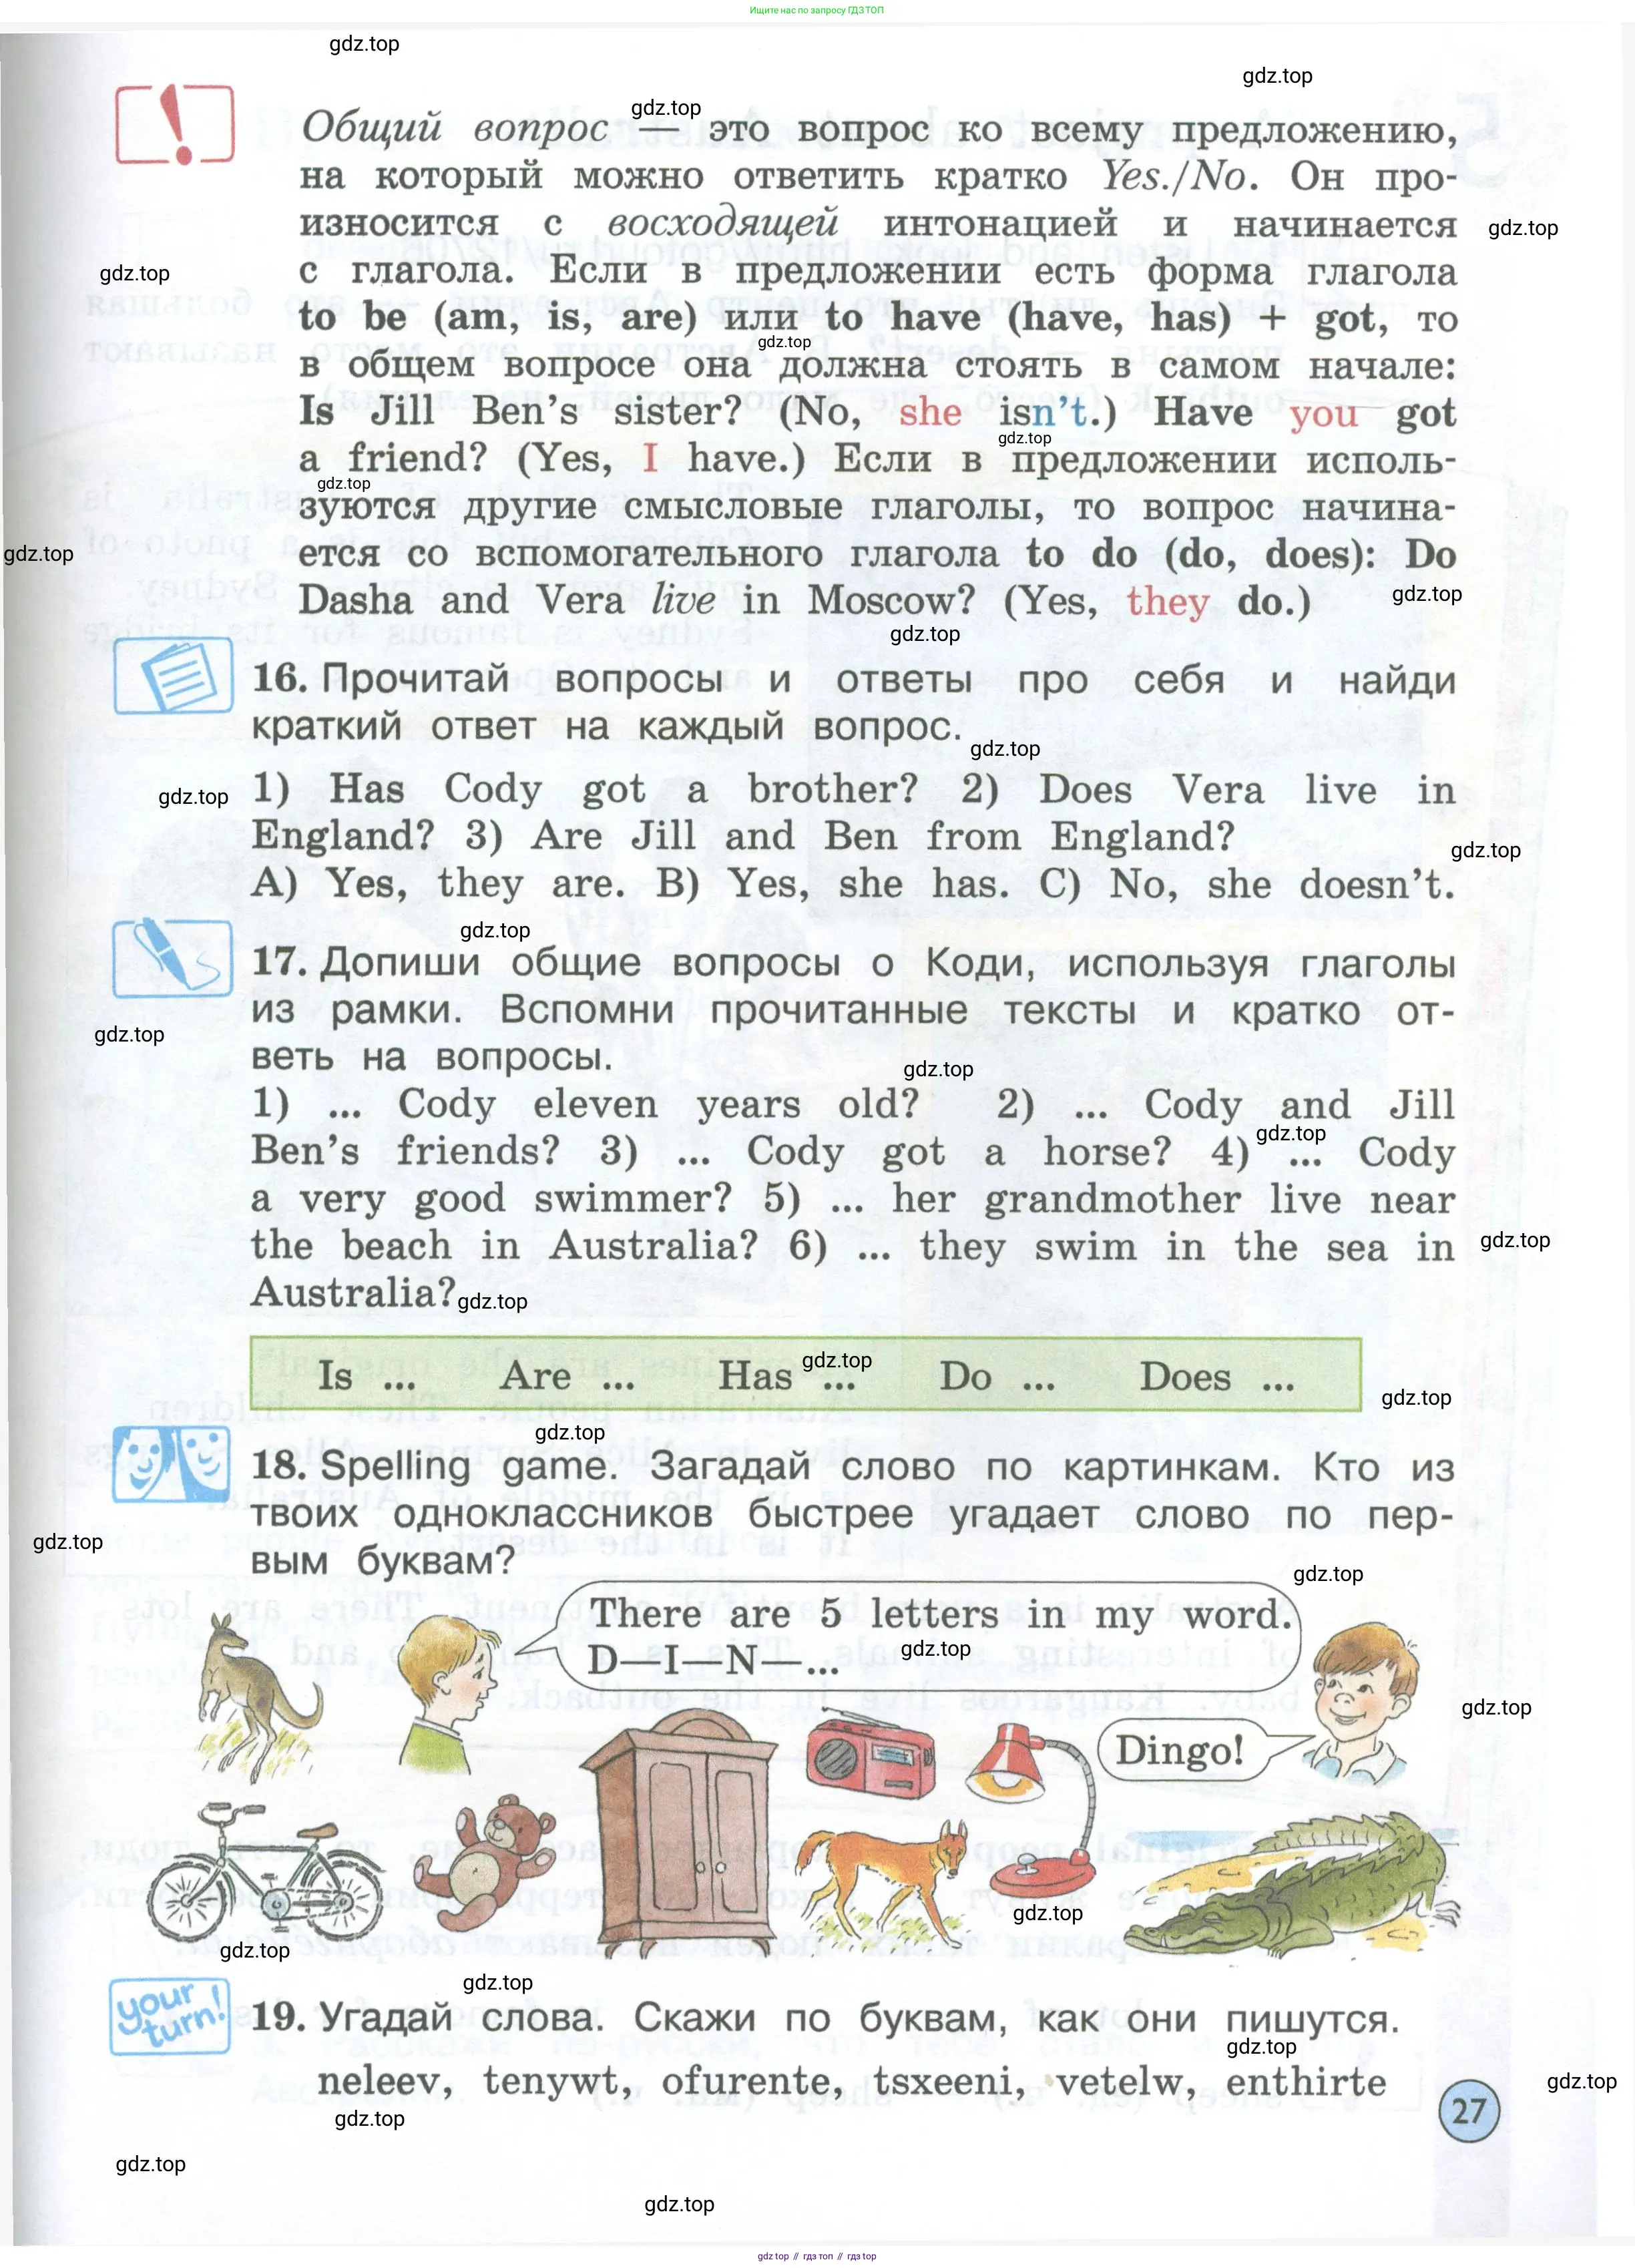 Ищите нас по запросу ГДЗ ТОП
gdz.top
gdz.top
gdz.top
Общий вопрос — это вопрос ко всему предложению,
на который можно ответить кратко Yes./No. Он про-
износится с восходящей интонацией и начинается
gdz.top
с глагола. Если в предложении есть форма глагола
gdz.top
to be (am, is, are) или to have (have, has) + got, то
gdz.top
в общем вопросе она должна стоять в самом начале:
Is Jill Ben’s sister? (No, she isn’t.) Have you got
gdz.top
a friend? (Yes, I have.) Если в предложении исполь-
gdz.top
зуются другие смысловые глаголы, то вопрос начина-
ется со вспомогательного глагола to do (do, does): Do
gdz.top
Dasha and Vera live in Moscow? (Yes, they do.)
gdz.top
gdz.top
16. Прочитай вопросы и ответы про себя и найди
краткий ответ на каждый вопрос.
gdz.top
1) Has Cody got a brother? 2) Does Vera live in
gdz.top
England? 3) Are Jill and Ben from England?
gdz.top
A) Yes, they are. B) Yes, she has. C) No, she doesn’t.
gdz.top
17. Допиши общие вопросы о Коди, используя глаголы
из рамки. Вспомни прочитанные тексты и кратко от-
gdz.top
веть на вопросы.
gdz.top
1) ... Cody eleven years old? 2) ... Cody and Jill
gdz.top
Ben’s friends? 3) ... Cody got a horse? 4) ... Cody
a very good swimmer? 5) ... her grandmother live near
the beach in Australia? 6) ... they swim in the sea in
gdz.top
Australia?
gdz.top
Is ... Are ... Has ... Do ... Does ...
gdz.top
gdz.top
gdz.top
18. Spelling game. Загадай слово по картинкам. Кто из
твоих одноклассников быстрее угадает слово по пер-
gdz.top
вым буквам?
gdz.top
There are 5 letters in my word.
D—I—N—...
gdz.top
gdz.top
Dingo!
gdz.top
gdz.top
gdz.top
your turn!
19. Угадай слова. Скажи по буквам, как они пишутся.
gdz.top
neleev, tenywt, ofurente, tsxeeni, vetelw, enthirte
gdz.top
27
gdz.top
gdz.top
gdz.top
gdz top // гдз топ // гдз top